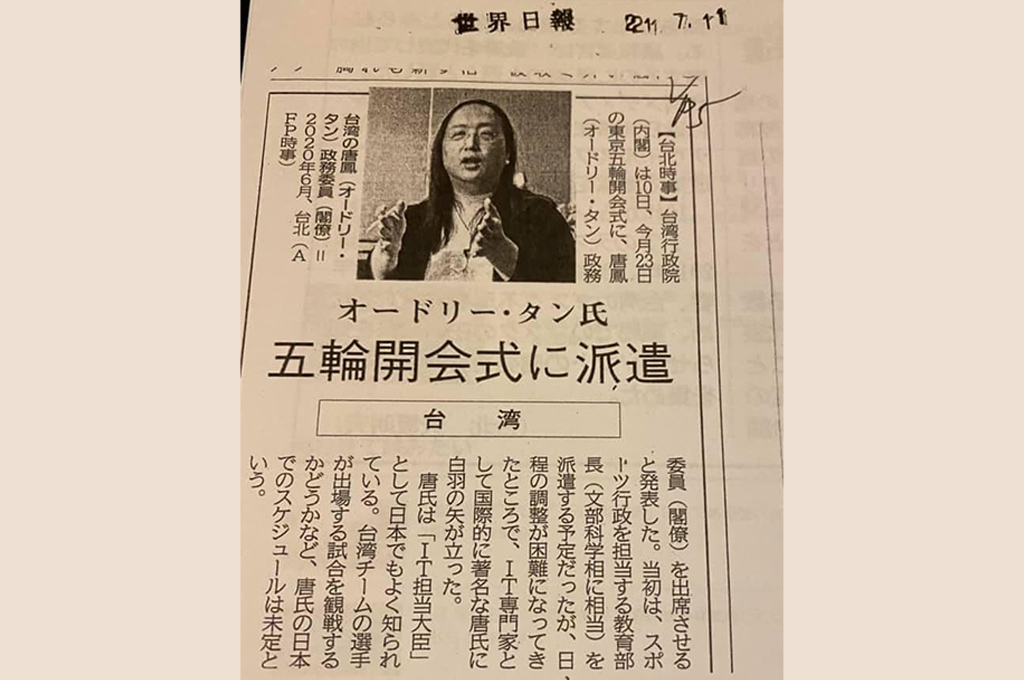 世界日報
221.7.11
【台北時事】台湾行政院
(内閣)は10日、今月23日
の東京五輪開会式に、唐鳳
(オードリー・タン)政務
台湾の唐鳳(オードリー・
タン)政務委員(閣僚)=
2020年6月、台北(A
FP時事)
オードリー・タン氏
五輪開会式に派遣
台湾
委員(閣僚)を出席させる
と発表した。当初は、スポ
ーツ行政を担当する教育部
長(文部科学相に相当)を
派遣する予定だったが、日
程の調整が困難になってき
たところで、IT専門家と
して国際的に著名な唐氏に
白羽の矢が立った。
唐氏は「IT担当大臣」
として日本でもよく知られ
ている。台湾チームの選手
が出場する試合を観戦する
かどうかなど、唐氏の日本
でのスケジュールは未定と
いう。